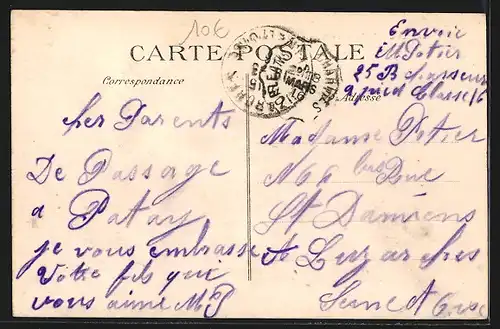 10€
CARTE POSTALE
Correspondance
Adresse
Envoie
M Potier
25 B Chasseurs
a pied Classe 16
Cher Parents
De Passage
a Patay
je vous embrasse
Votre fils qui
vous aime MP
Madame Potier
No bis Rue
St Damiens
A Luzarches
Seine et Oise